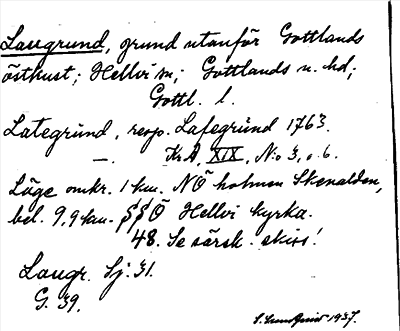 Laugrund, grund utanför Gottlands
östkust; Hellvi sn; Gottlands n. hd;
Gottl. l.
Lategrund, resp. Lafegrund 1763.
—. Kr A, XIX, N:o 3, o. 6.
Läge omkr. 1 km. NÖ holmen Skenalden,
bel. 9,9 km. SSÖ Hellvi kyrka.
48. Se särsk. skiss!
Laugr. Sj. 31.
G. 39.
S. Lundquist 1937.